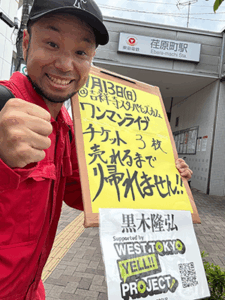 荏原町駅
Ebara-machi Sta.
月13日(日)
ワンマンライブ
チケット 3枚
売れるまで
帰れません!!
黒木隆弘
Supported by
WEST.TOKYO
YELL!!
PROJECT